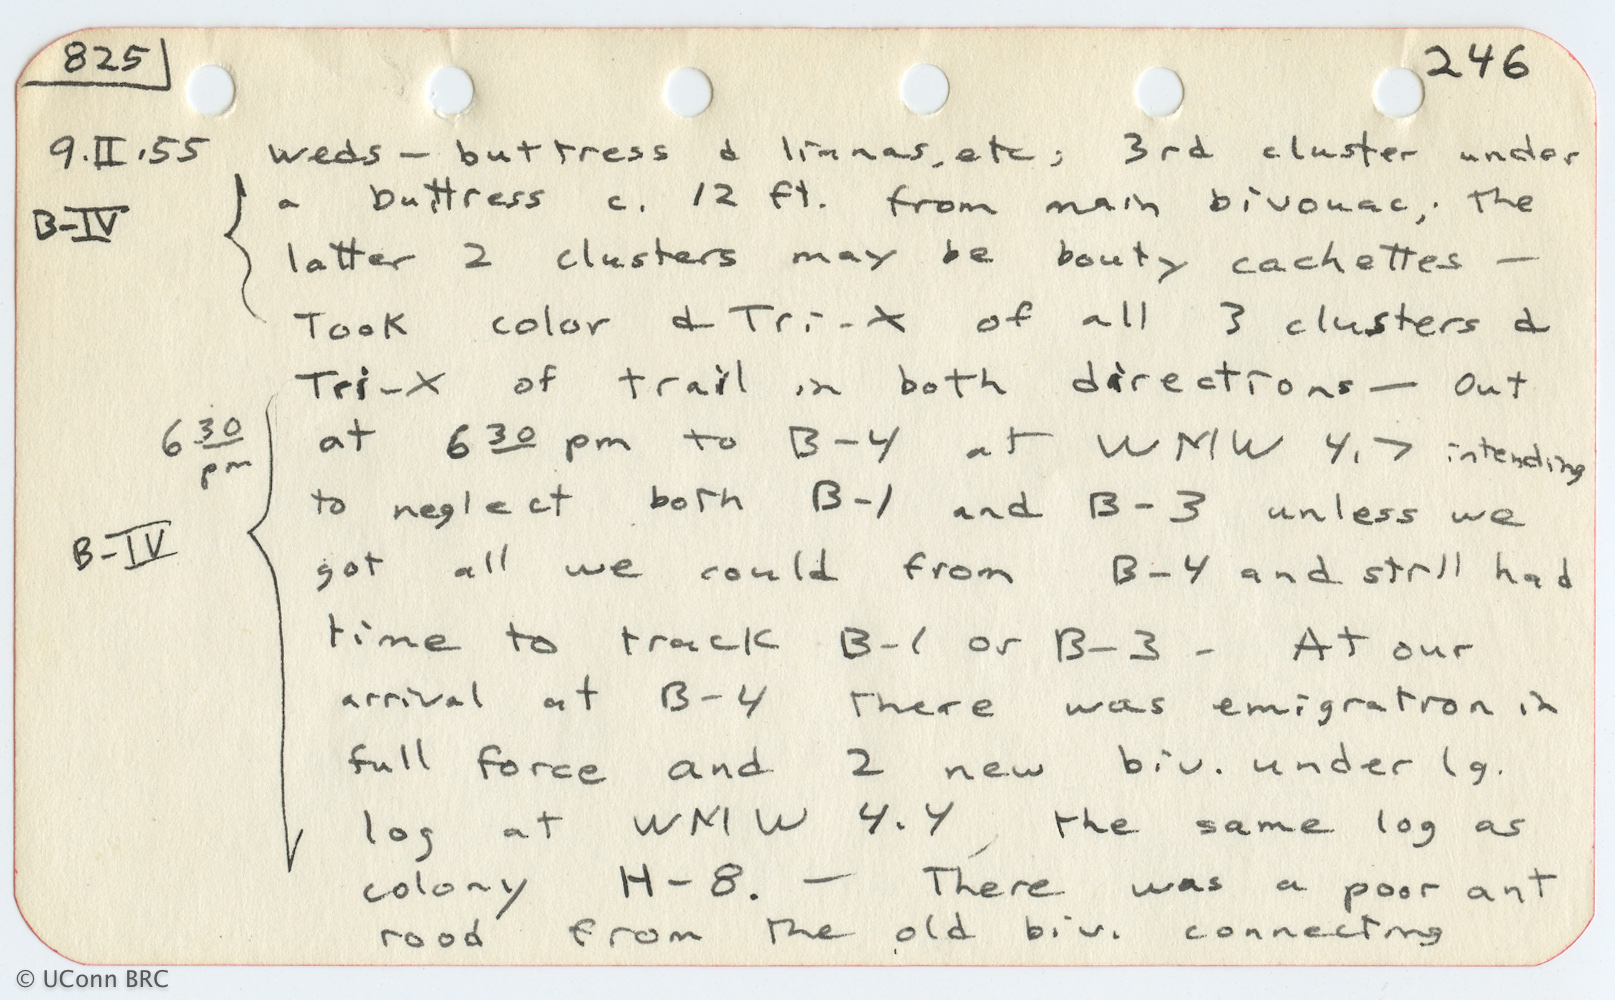 825
246
9.II.55 weds - buttress & lianas, etc; 3rd cluster under
B-IV a buttress c. 12 ft. from main bivouac; the
latter 2 clusters may be booty cachettes -
Took color & Tri-X of all 3 clusters &
Tri-X of trail in both directions - Out
6 30 pm at 6 30 pm to B-4 at WNW 4.7 intending
to neglect both B-1 and B-3 unless we
B-IV got all we could from B-4 and still had
time to track B-1 or B-3 - At our
arrival at B-4 there was emigration in
full force and 2 new biv. under lg.
log at WNW 4.4, the same log as
colony H-8. - There was a poor ant
road from the old biv. connecting
© UConn BRC